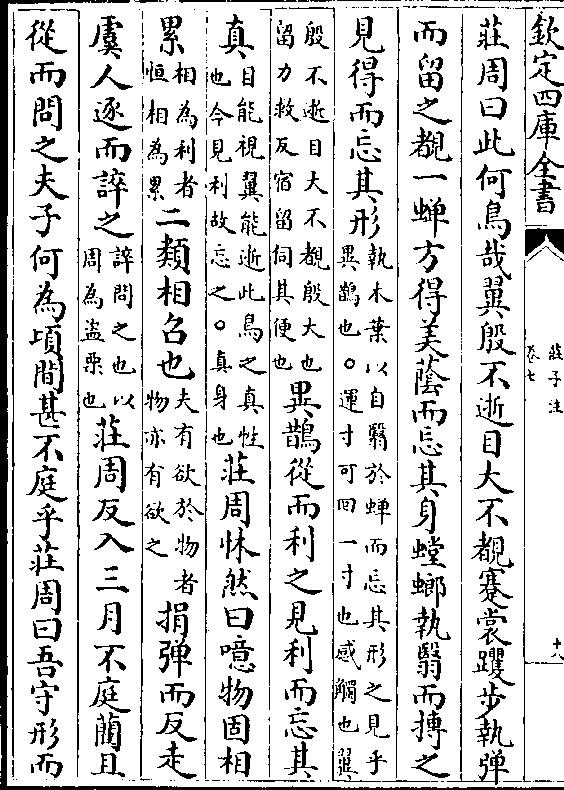 欽定四庫全書
莊子注
卷七
十八
莊周曰此何鳥哉翼殷不逝目大不覩蹇裳躩步執彈
而留之覩一蟬方得美蔭而忘其身螳螂執翳而搏之
見得而忘其形執木葉以自翳於蟬而忘其形之見乎
異鵲也○運寸可回一寸也感觸也翼
殷不逝目大不覩殷大也
留力救反宿留伺其便也異鵲從而利之見利而忘其
真目能視翼能逝此鳥之真性
也今見利故忘之○真身也莊周怵然曰噫物固相
累相為利者
恒相為累二類相召也夫有欲於物者
物亦有欲之捐彈而反走
虞人逐而誶之誶問之也以
周為盜栗也莊周反入三月不庭藺且
從而問之夫子何為頃間甚不庭乎莊周曰吾守形而